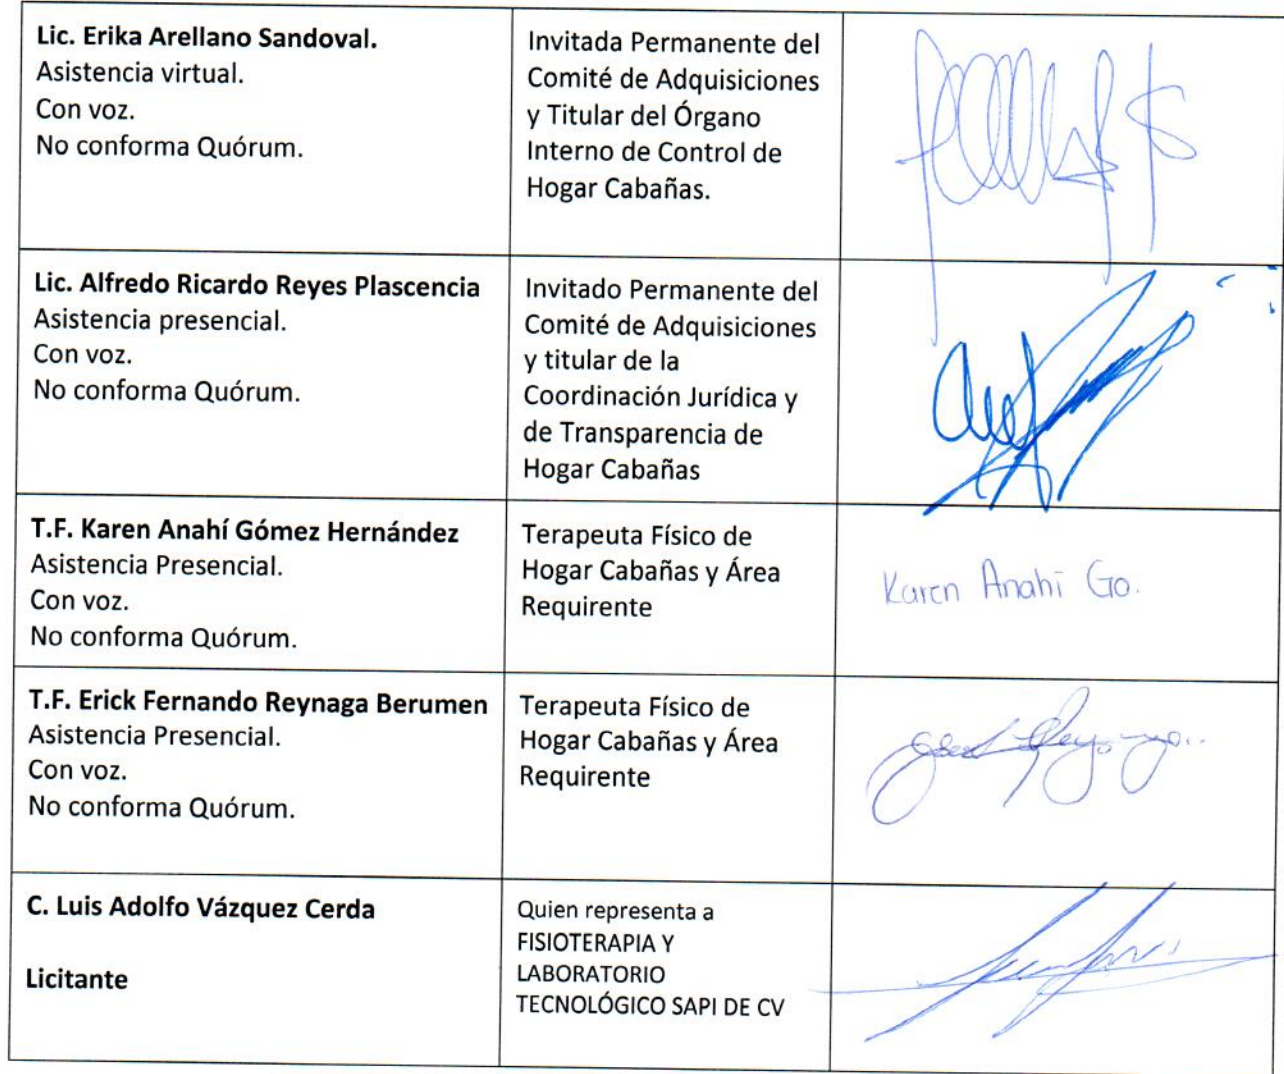 Lic. Erika Arellano Sandoval.
Asistencia virtual.
Con voz.
No conforma Quórum.
Invitada Permanente del
Comité de Adquisiciones
y Titular del Órgano
Interno de Control de
Hogar Cabañas.
Lic. Alfredo Ricardo Reyes Plascencia
Asistencia presencial.
Con voz.
No conforma Quórum.
Invitado Permanente del
Comité de Adquisiciones
y titular de la
Coordinación Jurídica y
de Transparencia de
Hogar Cabañas
T.F. Karen Anahí Gómez Hernández
Asistencia Presencial.
Con voz.
No conforma Quórum.
Terapeuta Físico de
Hogar Cabañas y Área
Requirente
Karen Anahi Go.
T.F. Erick Fernando Reynaga Berumen
Asistencia Presencial.
Con voz.
No conforma Quórum.
Terapeuta Físico de
Hogar Cabañas y Área
Requirente
C. Luis Adolfo Vázquez Cerda
Licitante
Quien representa a
FISIOTERAPIA Y
LABORATORIO
TECNOLÓGICO SAPI DE CV